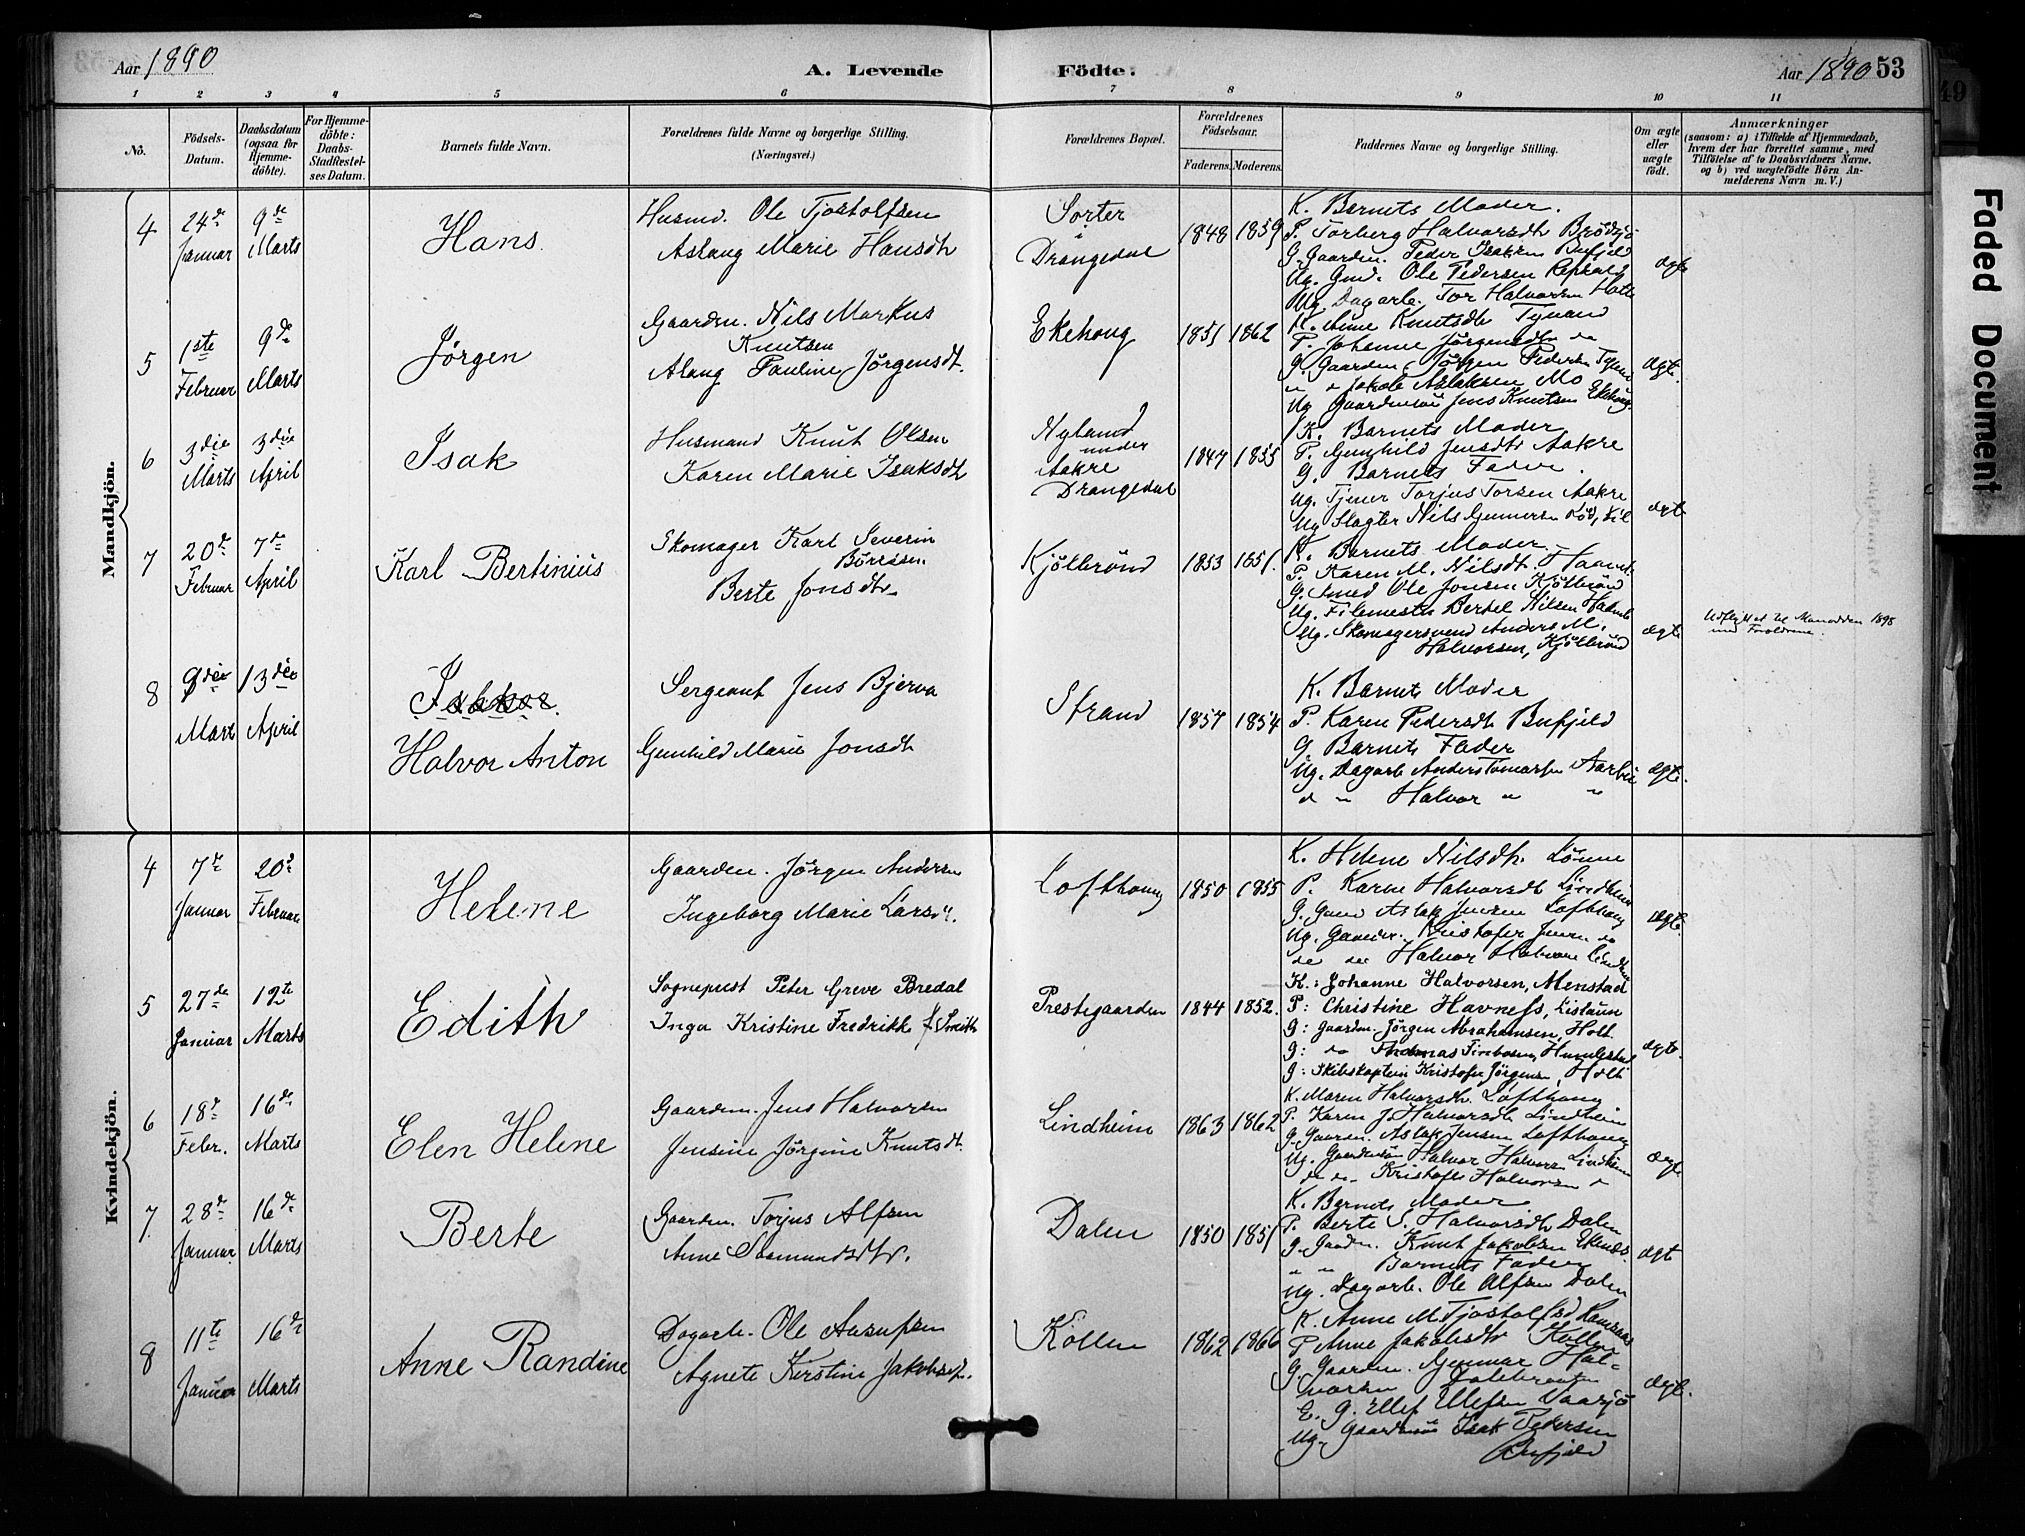 Aar 1890
A. Levende
Födte.
Aar 1890 53
1 2 3 4 5 6 7 8 9 10 11
Nô.
Födsels-Datum.
Daabsdatum (ogsaa for Hjemmedöbte).
For Hjemmedöbte: Daabs-Stadfæstelses Datum.
Barnets fulde Navn.
Forældrenes fulde Navne og borgerlige Stilling. (Næringsvei.)
Forældrenes Bopæl.
Forældrenes Födselsaar.
Faderens. Moderens.
Faddernes Navne og borgerlige Stilling.
Om ægte eller uægte födt.
Anmærkninger
(saasom: a) i Tilfælde af Hjemmedaab,
hvem der har forrettet samme, med
Tilföielse af to Daabsvidners Navne.
og b) ved uægtefödte Börn Anmelderens Navn m. V.)
Mandkjön.
4
24de Januar
9de Marts
Hans.
Husmd. Ole Tjostolfsen
Aslaug Marie Hansdtr
Sorter i Drangedal
1848 1859
K. Barnets Moder.
P. Torberg Halvorsdtr Brødsjø
G. Gaardm. Peder Isaksen Bufjeld
Ug. Gmd. Ole Pedersen
Ug. Dagarb. Tor Halvorsen
ægte
5
1ste Februar
9de Marts
Jørgen
Gaardm. Nils Markus
Knutsen
Aslaug Pauline Jörgensdt.
Ekehoug
1851 1862
K. Anne Knutsdtr
P. Johanne Jörgensdtr do
G. Gaardm. Jörgen Pedersen
" " Jakob Aslaksen Mo
Ug Gaardmsön Jens Knutsen Ekehoug
ægte.
6
3die Marts
3die April
Isak
Husmand Knut Olsen
Karen Marie Isaksdtr
Nyland under Aakre Drangedal
1847 1855
K. Barnets Moder
P. Gunhild Jensdtr Aakre
G. Barnets Fader.
Ug. Tjener Torjus Torsen Aakre
Ug Slagter Nils Gunnersen
ægte
7
20de Februar
7de April
Karl Bertinius
Skomager Karl Severin
Börresen.
Berte Jonsdtr.
Kjölbrönd
1853 1851.
K. Barnets Moder.
P. Karen M. Nilsdt.
G. Smed Ole Jonsen Kjölbrönd
Ug. Bertel Nilsen
Ug. Skomagersvend Anders M.
Halvorsen, Kjölbrönd
ægte
Udflyttet til 1898
med Forældrene.
8
9die Mars
13die April
Isakor.
Halvor Anton
Sergeant Jens Bjerva
Gunhild Marie Jonsdt
Strand
1857 1854
K. Barnets Moder
P. Karen Pedersdt Bufjeld
G. Barnets Fader
Ug. Dagarb Anders
d " Halvor " "
ægte.
Kvindekjön.
4
7de Januar
20de Februar
Helene
Gaardm. Jörgen Andersen
Ingeborg Marie Larsdt.
Lofthoug
1850 1855
K. Helene Nilsdtr. Lönne
P. Karen Halvorsdt Lindheim
G. Gmd Aslak Jensen Lofthoug
Ug. Kristofer Jensen do
do do Halvor Halvorsen Lindheim
ægte.
5
27de Januar
12te Marts
Edith
Sogneprest Peter Greve Bredal
Inga Kristine Fredrikke f. Smith
Prestegaarden
1844 1852.
K: Johanne Halvorsen, Menstad
P: Christine Havness, Listaun
G: Gaardm. Jörgen Abrahamsen, Holt.
G: do Thomas
G: Skibskaptein Kristofer Jörgensen, Holt
ægte.
6
18de Febr.
16de Marts
Elen Helene
Gaardm. Jens Halvorsen
Jensine Jörgine Knutsdt.
Lindheim
1863 1862
K. Maren Halvorsdtr. Lofthoug
P. Karen J. Halvorsdtr Lindheim
G. Gaardm. Aslak Jensen Lofthoug
Ug. Gaardmsön Halvor Halvorsen Lindheim
do do Kristofer Halvorsen do
ægte
7.
28de Januar
16de Marts
Berte
Gaardm. Torjus Alfsen
Anne Saamundsdtr.
Dalen
1850 1851
K. Barnets Moder
P. Berte S. Halvorsdtr Dalen
G. Gaardm. Knut Jakobsen Ekenes.
" " Barnets Fader
Ug. Dagarb. Ole Alfsen Dalen
ægte
8
11te Januar
16de Marts
Anne Randine
Dagarb. Ole
Agnete Kerstine Jakobsdt.
Kollen
1862 1866
K. Anne M. Tjostolfsd
P Anne Jakobsdtr Kollen
G. Gaardm. Gunnar Halvorsen
E. G. Ellef Ellefsen Vaasjö
Ug. Gaardmsön Isak Pedersen
Bufjeld
ægte.
Faded Document